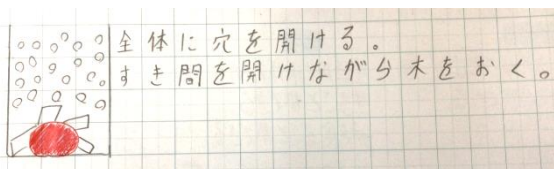 全体に穴を開ける。
すき間を開けながら木をおく。